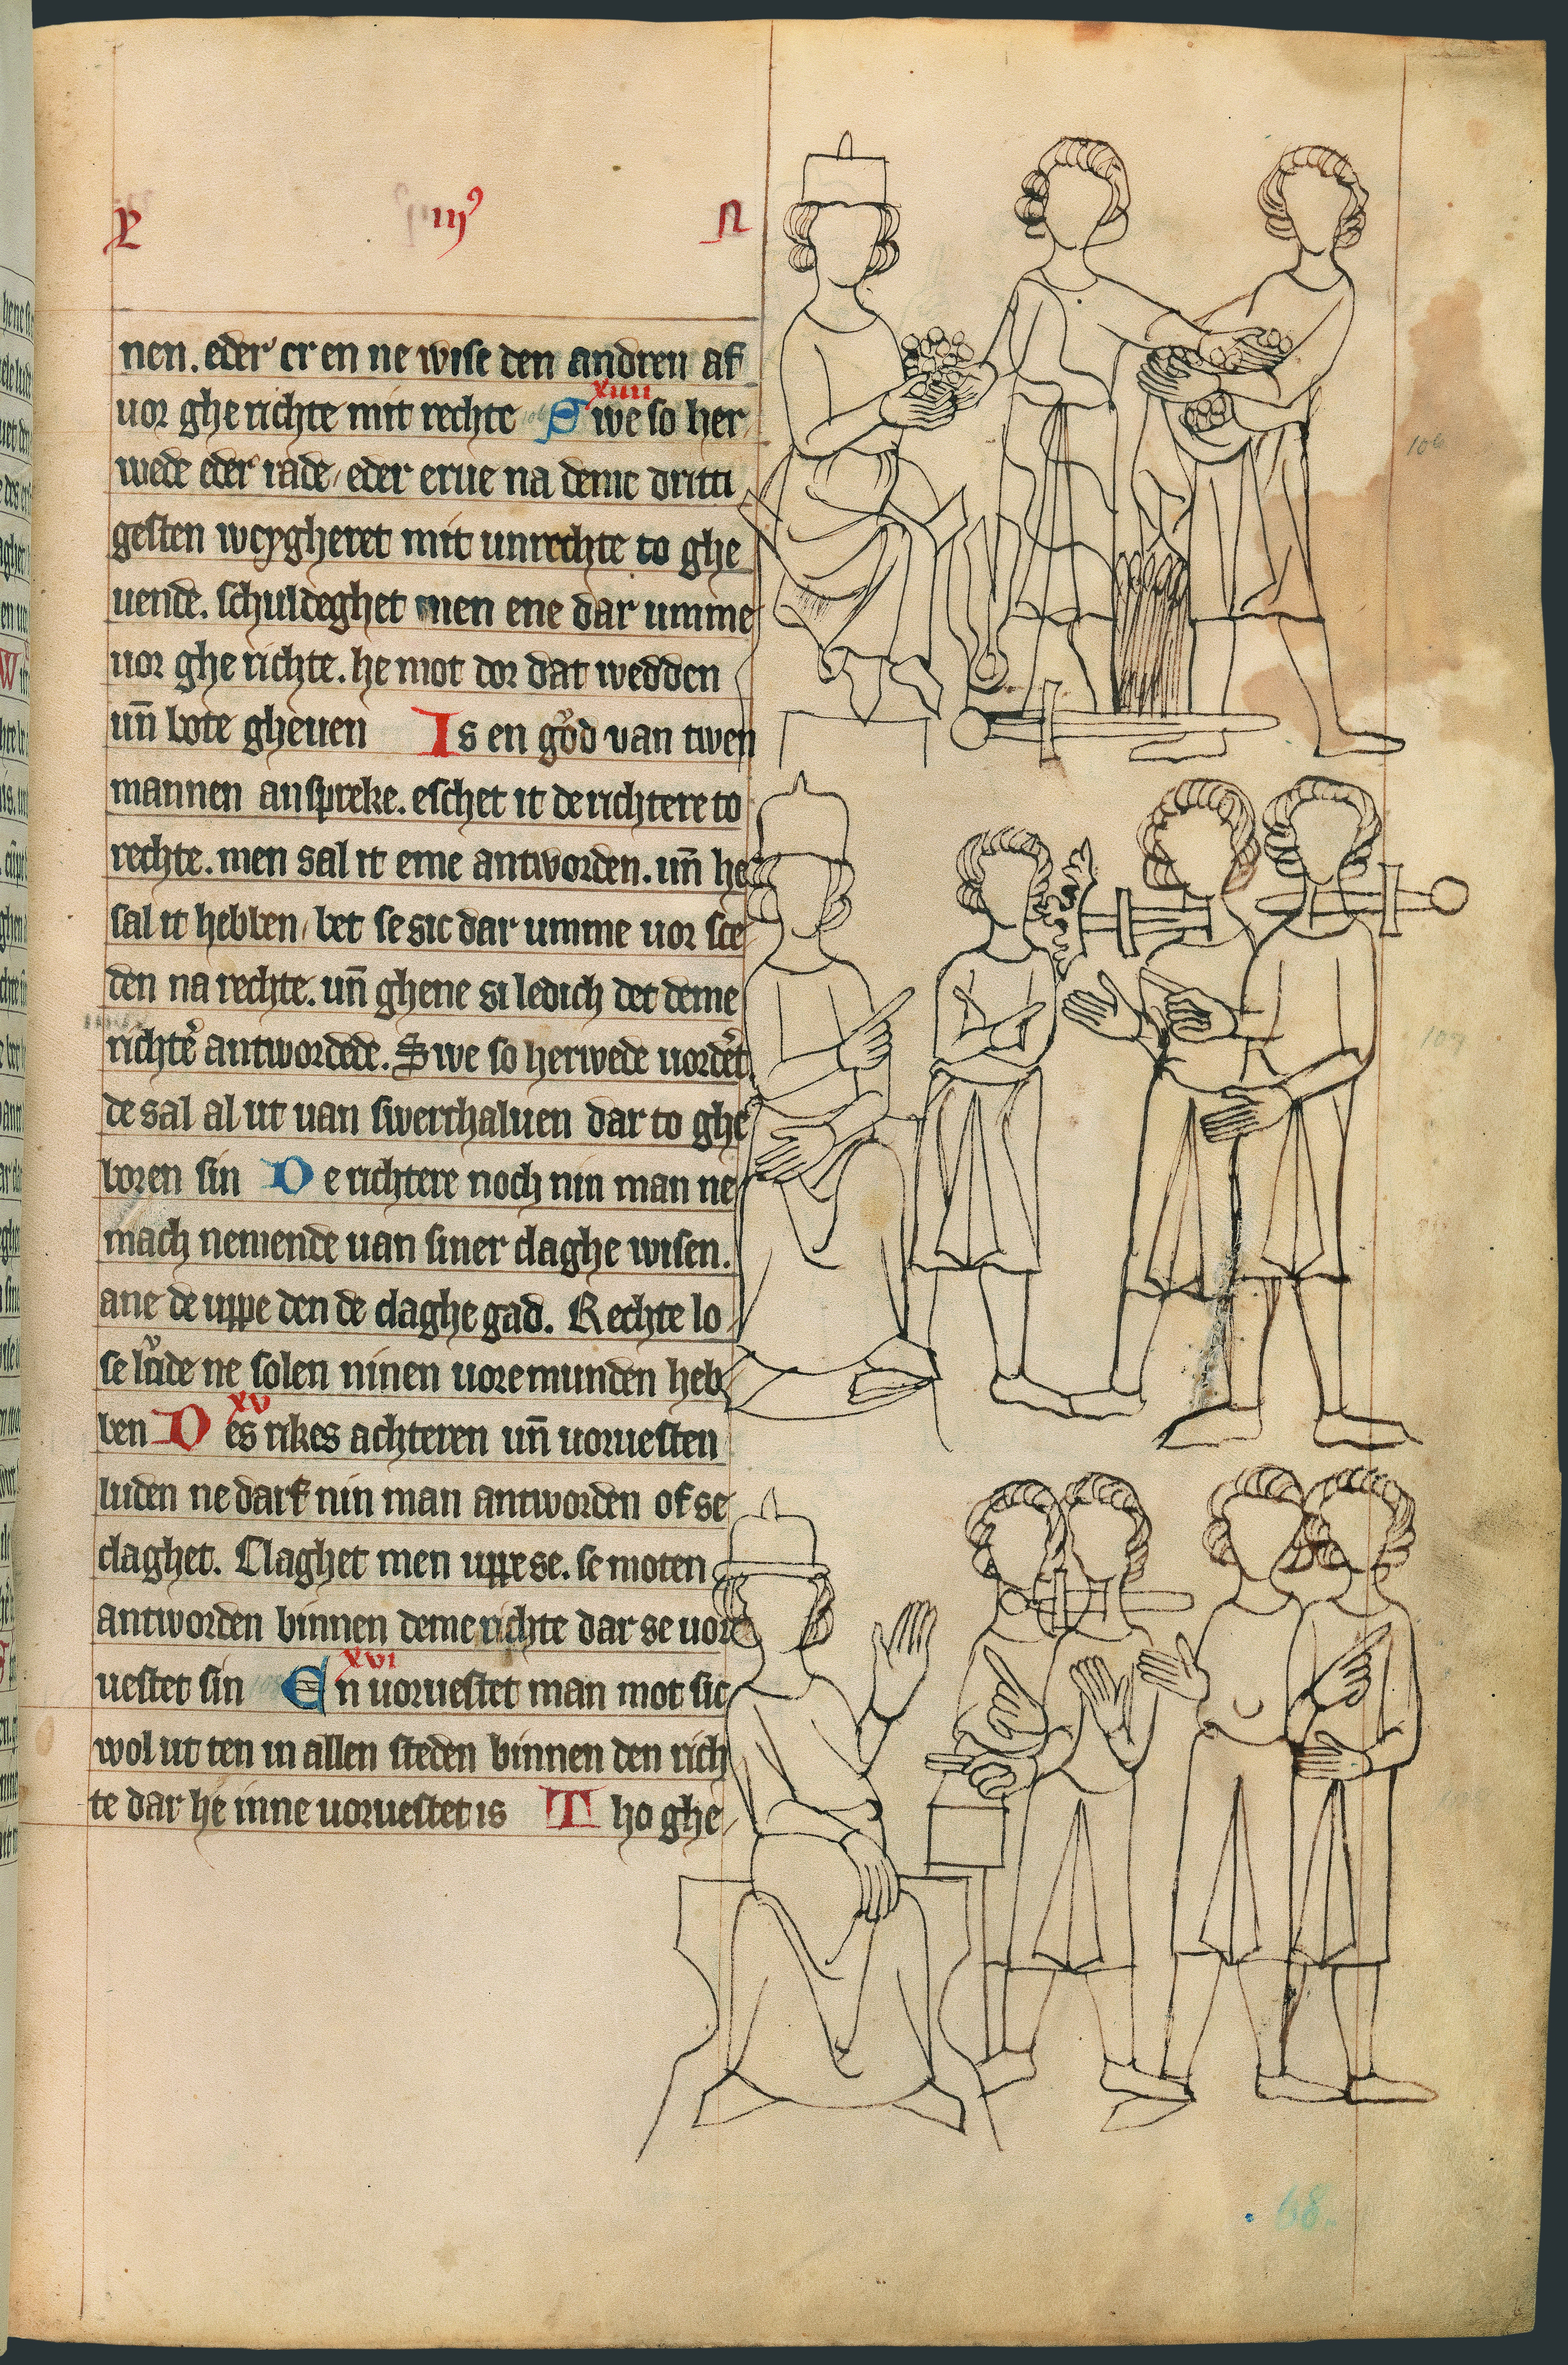 nen. eder er en ne wise den andren af
uor ghe richte mit rechte xiiii Swe so her
wede eder rade, eder erue na deme dritti
gesten weygheret mit unrechte to ghe
uende. schuldeghet men ene dar umme
uor ghe richte. he mot dor dat wedden
un̄ bote gheuen Is en gůd van twen
mannen anspreke. eschet it de richtere to
rechte. men sal it eme antworden. un̄ he
sal it hebben, bet se sic dar umme uor sce
den na rechte. un̄ ghene si ledich det deme
richtē antwordede. Swe so herwede uordēt
de sal al ut uan swerthaluen dar to ghe
boren sin De richtere noch nin man ne
mach nemende uan siner claghe wisen.
ane de uppe den de claghe gad. Rechte lo
se lůde ne solen ninen uoremunden heb
ben xv Des rikes achteren un̄ uoruesten
luden ne darf nin man antworden of se
claghet. Claghet men uppe se. se moten
antworden binnen deme richte dar se uor
uestet sin xvi En uoruestet man mot sic
wol ut ten in allen steden binnen den rich
te dar he inne uoruestet is Tho ghe
106
107
68